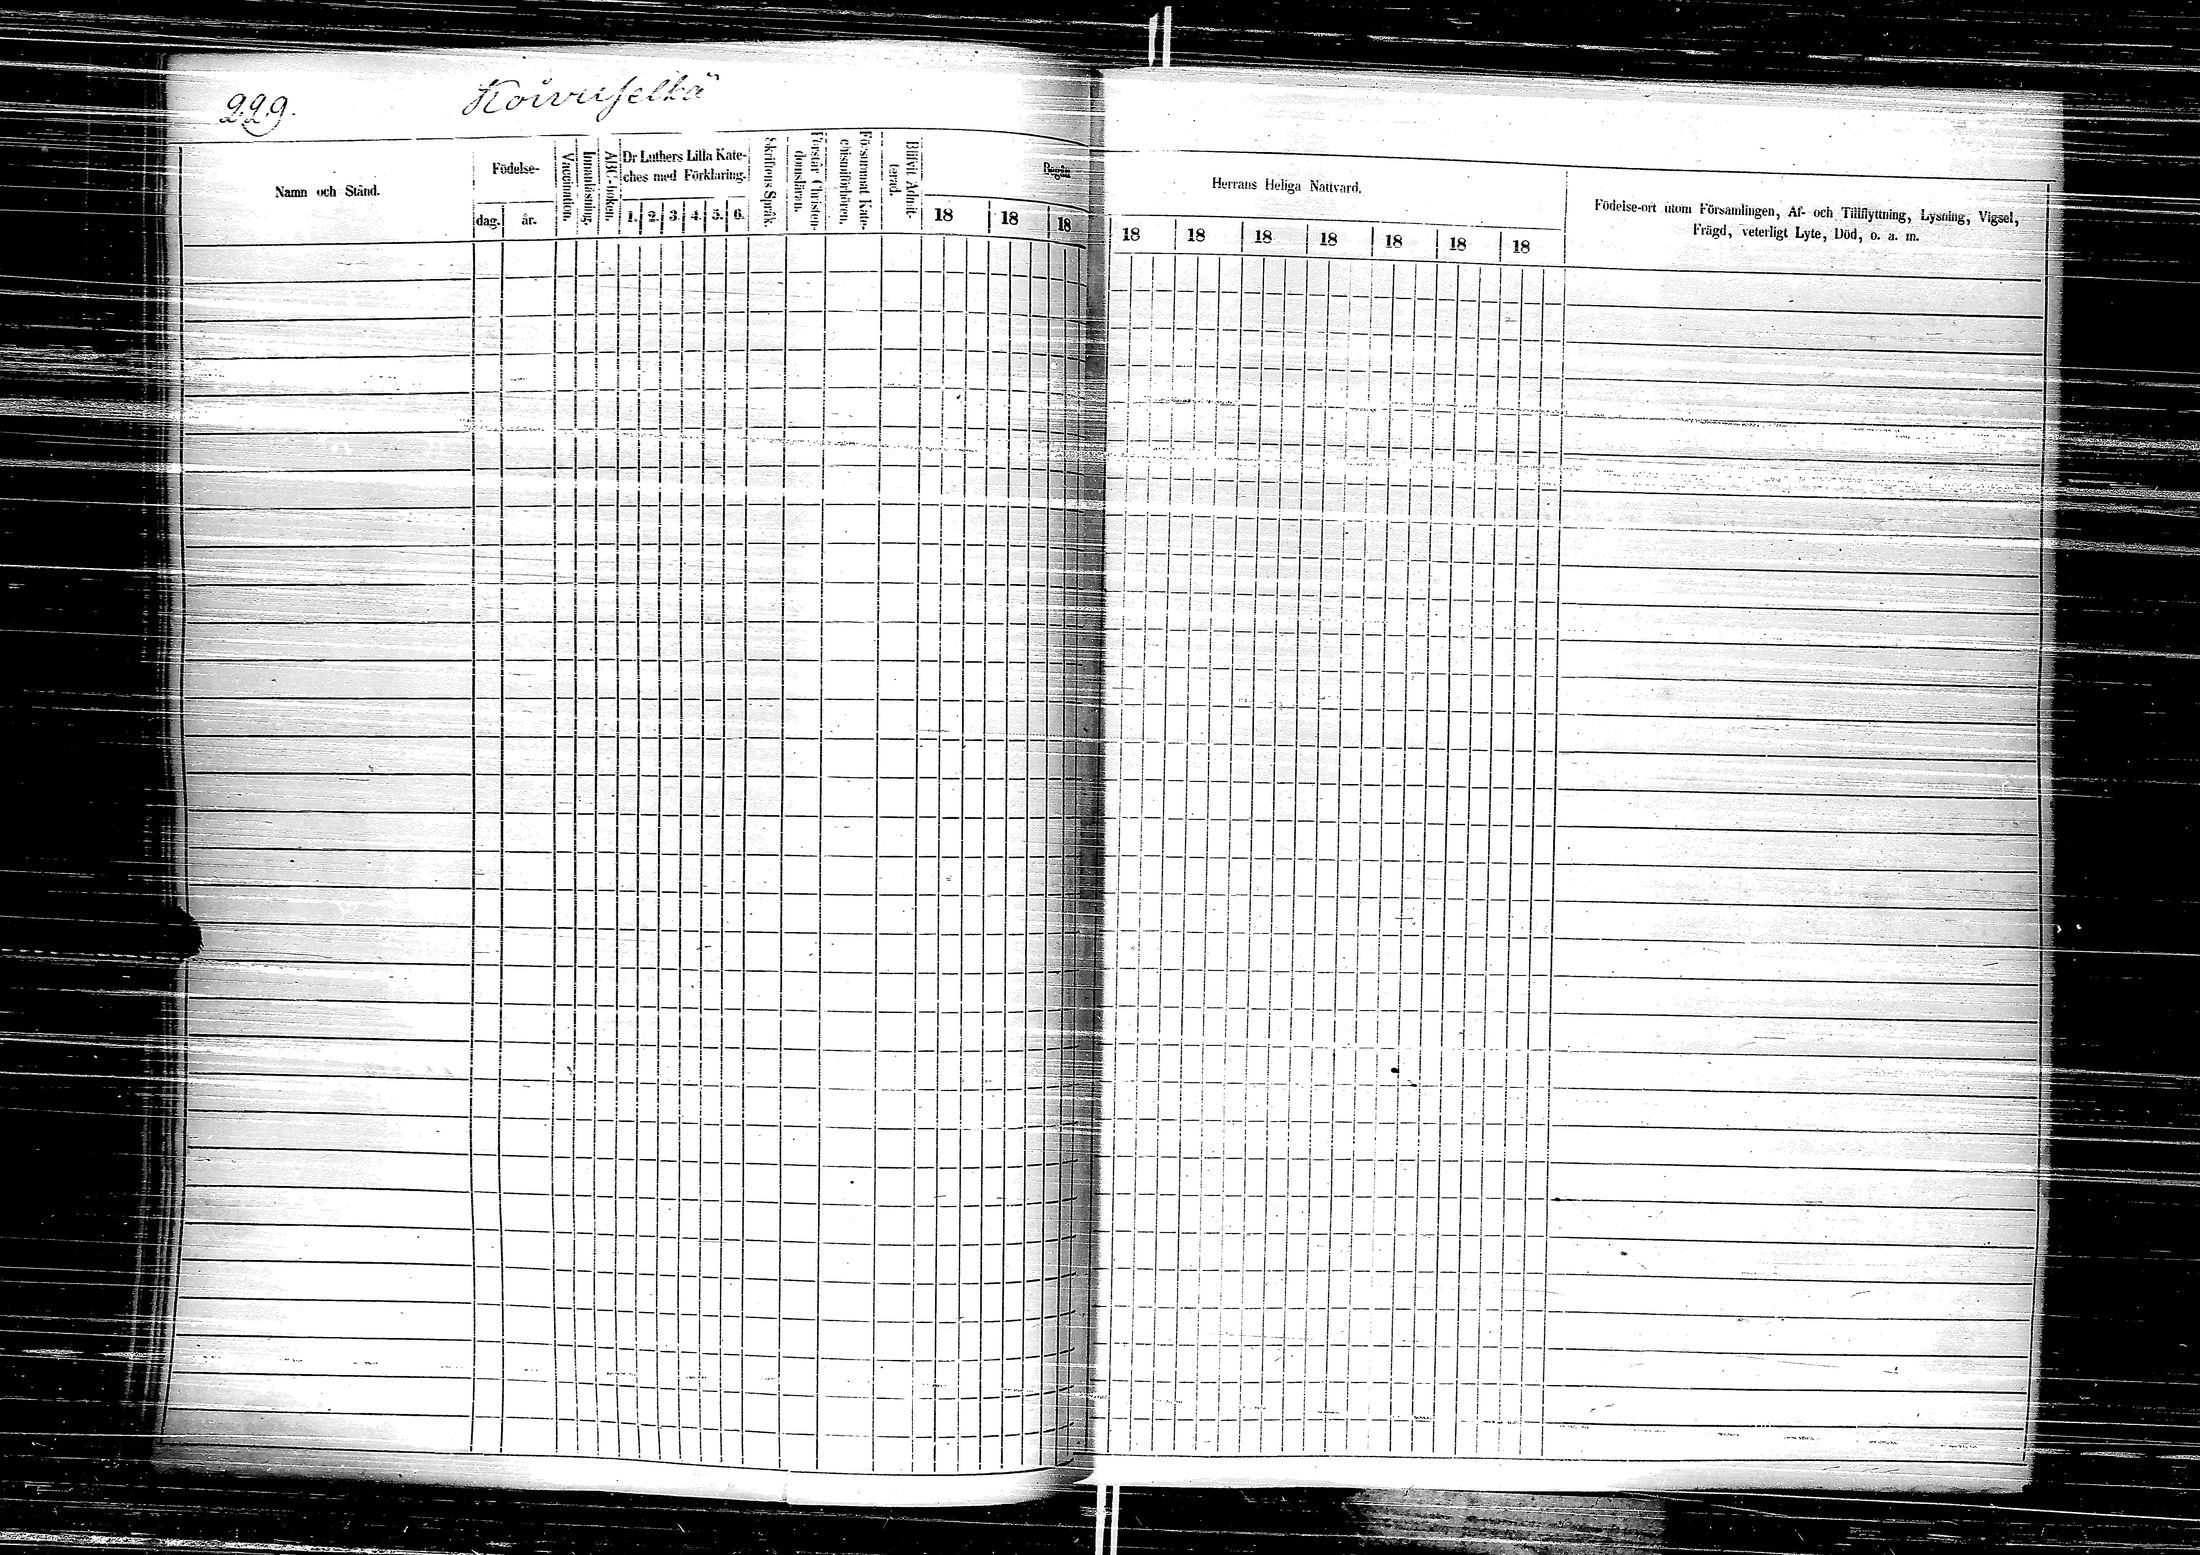 229.
Koivuselkä
Namn och Stånd.
Födelse-
dag.
år.
Vaccination.
Innanläsning.
ABC-boken.
Dr Luthers Lilla Kate-
ches med Förklaring.
1. 2. 3. 4. 5. 6.
Skriftens Språk.
Förstår Christen-
domsläran.
Försummat Kate-
chismiförhören.
Blifvit Admit-
terad.
Begått
18 18 18
Herrans Heliga Nattvard.
18 18 18 18 18 18 18
Födelse-ort utom Församlingen, Af- och Tillflyttning, Lysning, Vigsel,
Frägd, veterligt Lyte, Död, o. a. m.